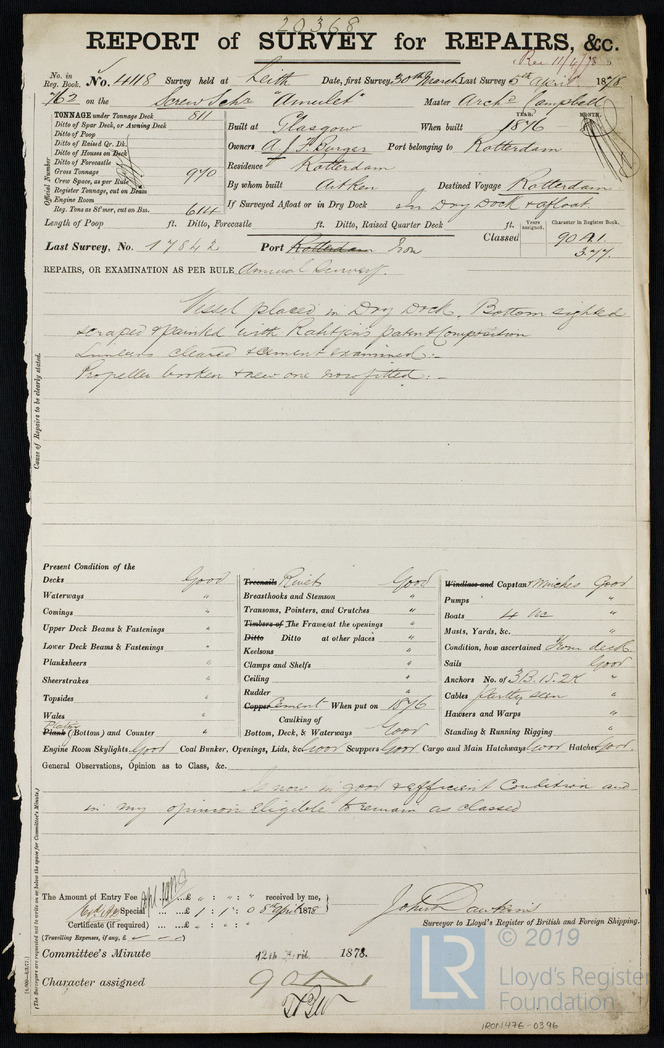 20368
REPORT of SURVEY for REPAIRS, &c.
Rec 11/4/78
No. in Reg. Book. No. 4118 Survey held at Leith Date, first Survey 30th March Last Survey 5th April 1878
762 on the Screw Schr "Amulet" Master Archd Campbell
TONNAGE under Tonnage Deck 811
Ditto of Spar Deck, or Awning Deck
Ditto of Poop
Ditto of Raised Qr. Dk.
Ditto of Houses on Deck
Ditto of Forecastle
Gross Tonnage 970
Crew Space, as per Rule
Register Tonnage, cut on Beam
Engine Room
Reg. Tons as St'mer, cut on Bm. 614
Official Number
Built at Glasgow When built YEAR. 1876 MONTH.
Owners A. J. & H. Burger Port belonging to Rotterdam
Residence Rotterdam
By whom built Aitken Destined Voyage Rotterdam
If Surveyed Afloat or in Dry Dock in Dry Dock & afloat
Length of Poop ft. Ditto, Forecastle ft. Ditto, Raised Quarter Deck ft.
Last Survey, No. 17842 Port Rotterdam Iron Classed Years assigned. Character in Register Book. 90 A.1. 3.77.
REPAIRS, OR EXAMINATION AS PER RULE Annual Survey.
Vessel placed in Dry Dock. Bottom sighted
scraped & painted with Rahtjens patent Composition
Limbers cleared & cement examined:-
Propeller broken & new one now fitted:-
Cause of Repairs to be clearly stated.
Present Condition of the
Decks Good
Waterways "
Comings "
Upper Deck Beams & Fastenings "
Lower Deck Beams & Fastenings "
Planksheers "
Sheerstrakes "
Topsides "
Wales "
Plank Plating (Bottom) and Counter "
Treenails Rivets Good
Breasthooks and Stemson "
Transoms, Pointers, and Crutches "
Timbers of The Frame at the openings "
Ditto Ditto at other places "
Keelsons "
Clamps and Shelfs "
Ceiling "
Rudder "
Copper Cement When put on 1876
Caulking of
Bottom, Deck, & Waterways Good
Windlass and Capstan & Winches Good
Pumps "
Boats 4 No "
Masts, Yards, &c. "
Condition, how ascertained From deck
Sails Good
Anchors No. of 3B. 1S. 2K "
Cables Partly seen "
Hawsers and Warps "
Standing & Running Rigging "
Engine Room Skylights Good Coal Bunker, Openings, Lids, &c. Good Scuppers Good Cargo and Main Hatchways Good Hatches Good.
General Observations, Opinion as to Class, &c.
Is now in good & efficient Condition and
in my opinion Eligible to remain as classed
The Amount of Entry Fee ...£ " : " : " received by me,
Special ... ...£ 1 : 1 : 0 8th April 1878
Certificate (if required) ... ...£ " : " : "
(Travelling Expenses, if any, £ )
Surveyor to Lloyd's Register of British and Foreign Shipping.
Committee's Minute 12th April 1878.
Character assigned 90 A
(The Surveyors are requested not to write on or below the space for Committee's Minute.)
© 2019
LR
Lloyd's Register
Foundation
IRON476-0396